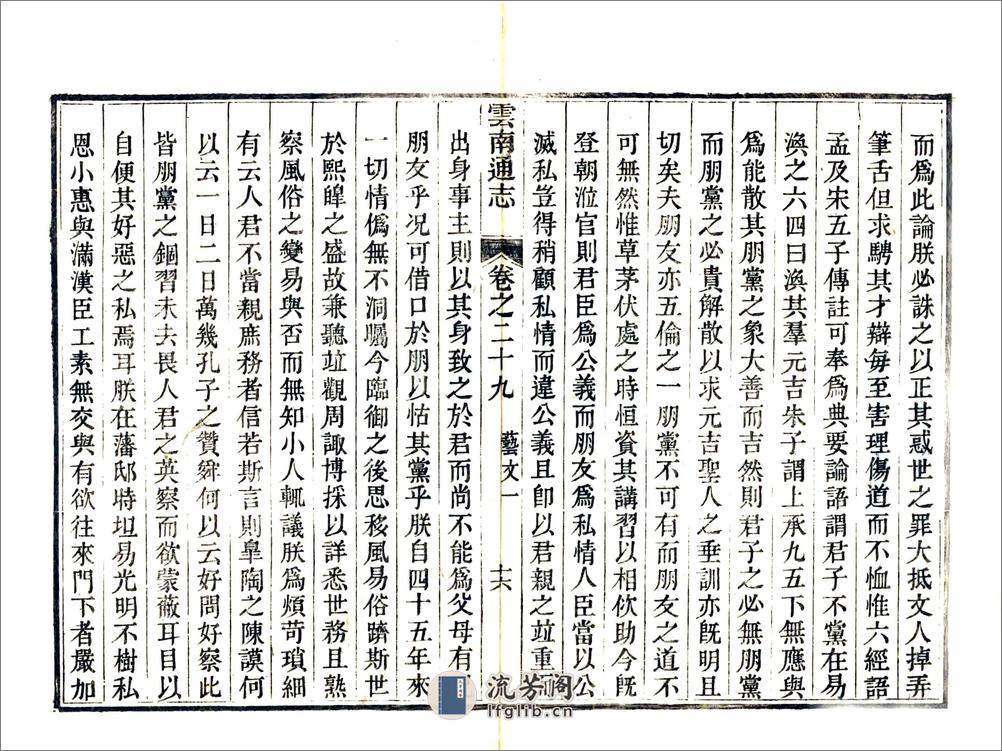 而爲此論朕必誅之以正其惑世之罪大抵文人掉弄
筆舌但求騁其才辯每至害理傷道而不恤惟六經語
孟及宋五子傳註可奉爲典要論語謂君子不黨在易
渙之六四曰渙其羣元吉朱子謂上承九五下無應與
爲能散其朋黨之象大善而吉然則君子之必無朋黨
而朋黨之必貴解散以求元吉聖人之垂訓亦旣明且
切矣夫朋友亦五倫之一朋黨不可有而朋友之道不
可無然惟草茅伏處之時恒資其講習以相佽助今旣
登朝涖官則君臣爲公義而朋友爲私情人臣當以公
滅私豈得稍顧私情而違公義且卽以君親之竝重
雲南通志
卷之二十九
藝文一
十六
出身事主則以其身致之於君而尚不能爲父母有
朋友乎况可借口於朋以怙其黨乎朕自四十五年來
一切情僞無不洞矚今臨御之後思移風易俗躋斯世
於熙皡之盛故兼聽竝觀周諏博採以詳悉世務且熟
察風俗之變易與否而無知小人輒議朕爲煩苛瑣細
有云人君不當親庶務者信若斯言則皐陶之陳謨何
以云一日二日萬幾孔子之贊舜何以云好問好察此
皆朋黨之錮習未去畏人君之英察而欲蒙蔽耳目以
自便其好惡之私焉耳朕在藩邸時坦易光明不樹私
恩小惠與滿漢臣工素無交與有欲往來門下者嚴加
流芳閣
lfglib.cn